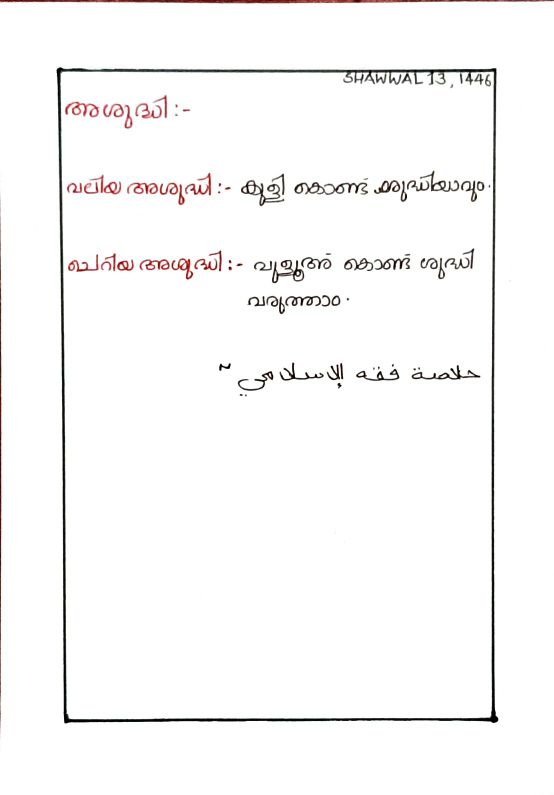 SHAWWAL 13, 1446
അശുദ്ധി :-
വലിയ അശുദ്ധി :- കുളി കൊണ്ട് ശുദ്ധിയാവും.
ചെറിയ അശുദ്ധി :- വുളൂഅ് കൊണ്ട് ശുദ്ധി
വരുത്താം.
خلاصة فقه الإسلامي ~